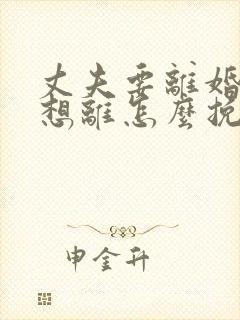 丈夫要離婚
想離怎麼挽
申金升